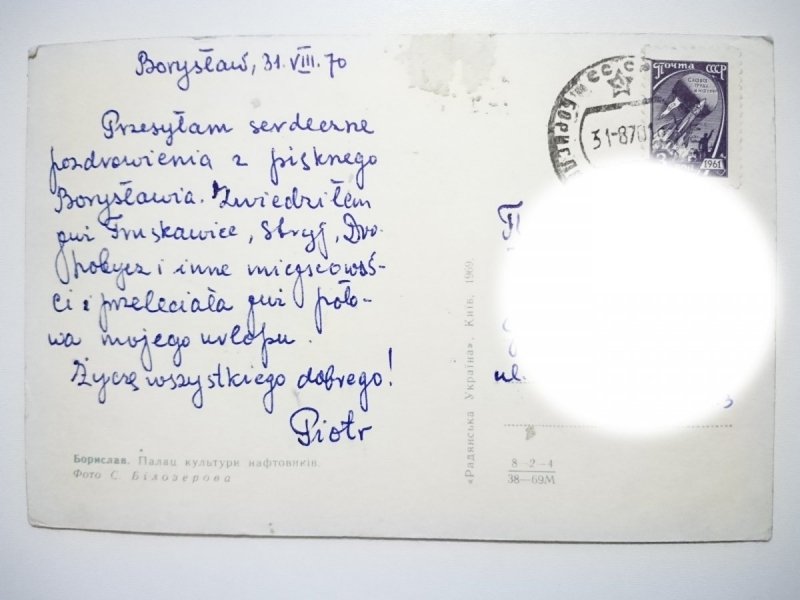 Borysław, 31.VIII.70
Przesyłam serdeczne
pozdrowienia z pięknego
Borysławia. Zwiedziłem
już Truskawice, Stryj, Dro-
hobycz i inne miejscowoś-
ci i przeleciała już poło-
wa mojego urlopu.
Życzę wszystkiego dobrego!
Piotr
Борислав. Палац культури нафтовиків.
Фото С. Білозерова
«Радянська Україна», Київ, 1969.
8-2-4
38-69М
ПОЧТА СССР
1961
СССР
31-870
ul.